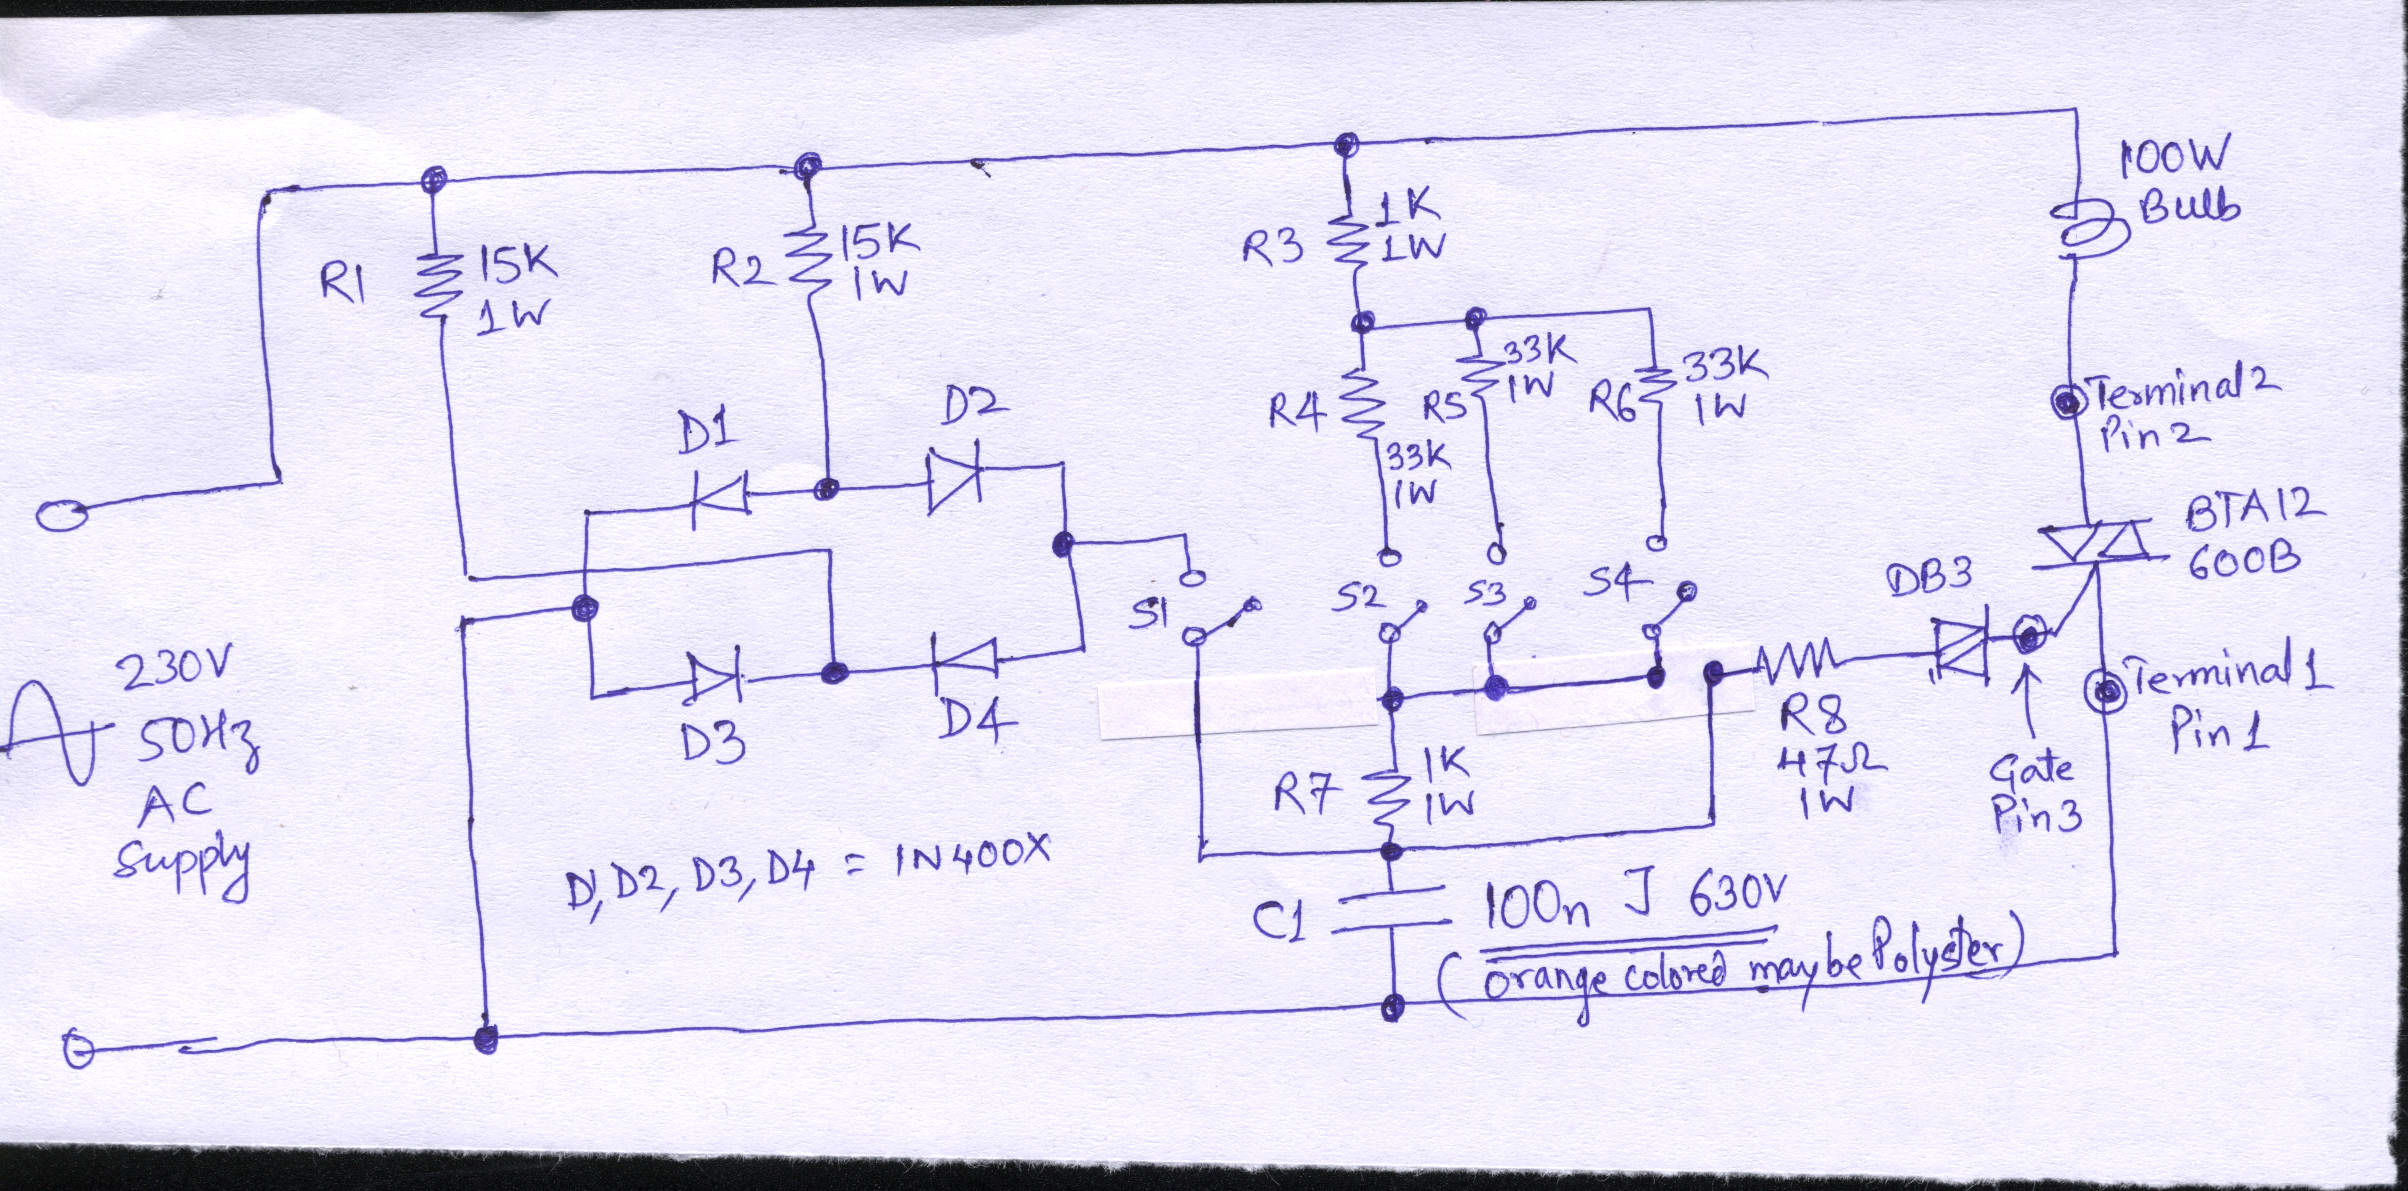 100W
Bulb
R1
15K
1W
R2
15K
1W
R3
1K
1W
R4
33K
1W
R5
33K
1W
R6
33K
1W
Terminal 2
Pin 2
D1
D2
BTA12
600B
DB3
S1
S2
S3
S4
230V
50Hz
AC
Supply
D3
D4
Terminal 1
Pin 1
R8
47Ω
1W
Gate
Pin 3
R7
1K
1W
D1, D2, D3, D4 = IN400X
C1
100n J 630V
(orange colored maybe Polyster)